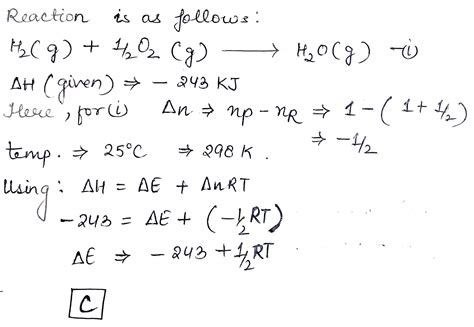 Reaction is as follows:
H₂(g) + 1/2 O₂ (g) ⟶ H₂O(g) —(i)
ΔH (given) ⇒ - 243 KJ
Here, for (i) Δn ⇒ np - nR ⇒ 1 - (1 + 1/2)
⇒ -1/2
temp. ⇒ 25°C ⇒ 298 K.
Using: ΔH = ΔE + ΔnRT
-243 = ΔE + (-1/2 RT)
ΔE ⇒ -243 + 1/2 RT
C